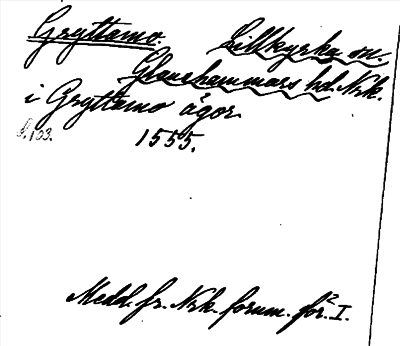 Gryttamo. Lillkyrka sn.
Glanshammars hd. Nrk.
i Gryttamo ägor
s. 153. 1555.
Medd. fr. Nrk. fornm. för. 2 I.